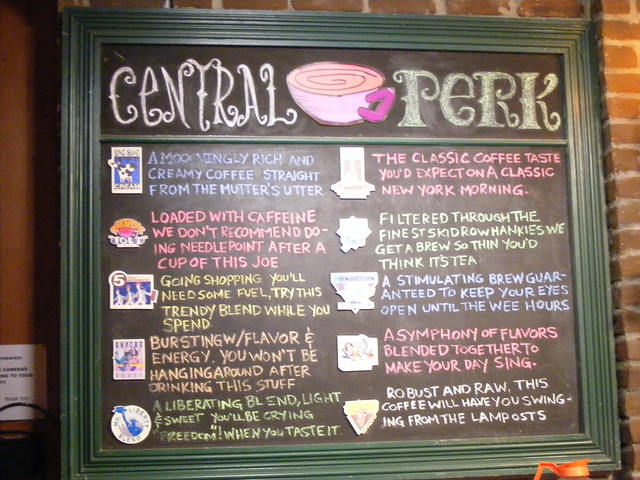 CENTRAL PERK
A MOOOVINGLY RICH AND
CREAMY COFFEE STRAIGHT
FROM THE MUTTER'S UTTER
LOADED WITH CAFFEINE
WE DON'T RECOMMEND DO-
ING NEEDLEPOINT AFTER A
CUP OF THIS JOE
5
GOING SHOPPING YOU'LL
NEED SOME FUEL, TRY THIS
TRENDY BLEND WHILE YOU
SPEND
EMPIRE
ROAST
BURSTING W/FLAVOR &
ENERGY, YOU WON'T BE
HANGING AROUND AFTER
DRINKING THIS STUFF
LIBERTY
BLEND
A LIBERATING BLEND, LIGHT
& SWEET YOU'LL BE CRYING
"FREEDOM"! WHEN YOU TASTE IT
THE CLASSIC COFFEE TASTE
YOU'D EXPECT ON A CLASSIC
NEW YORK MORNING.
FILTERED THROUGH THE
FINEST SKID ROW HANKIES WE
GET A BREW SO THIN YOU'D
THINK IT'S TEA
A STIMULATING BREW GUAR-
ANTEED TO KEEP YOUR EYES
OPEN UNTIL THE WEE HOURS
A SYMPHONY OF FLAVORS
BLENDED TOGETHER TO
MAKE YOUR DAY SING.
ROBUST AND RAW, THIS
COFFEE WILL HAVE YOU SWING-
ING FROM THE LAMPOSTS
CAMERAS